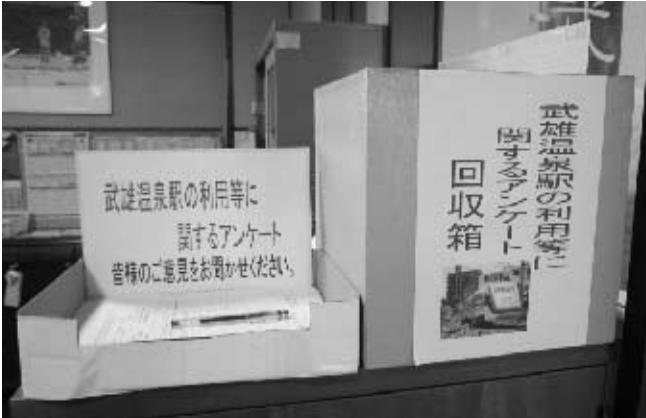 武雄温泉駅の利用等に
関するアンケート
皆様のご意見をお聞かせください。
武雄温泉駅の利用等に
関するアンケート
回収箱